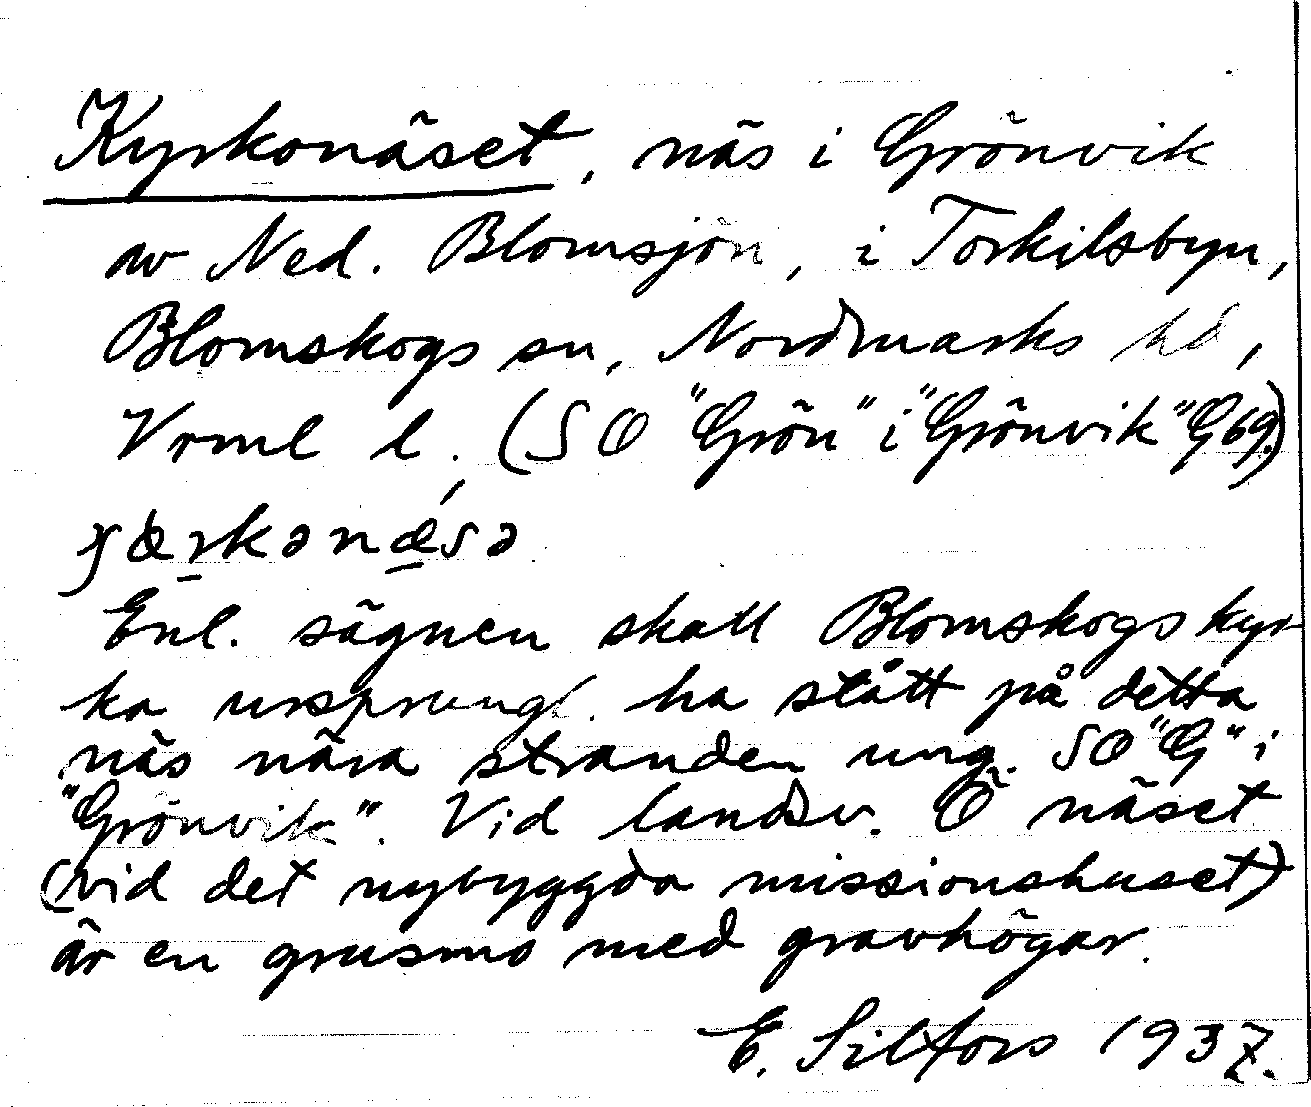 Kyrkonäset, näs i Grönvik
av Ned. Blomsjön, i Torkilsbyn,
Blomskogs sn, Nordmarks hd,
Vrml l. (SO "Grön" i "Grönvik" G69.)
Enl. sägnen skall Blomskogs kyr
ka ursprungl. ha stått på detta
näs nära stranden ung. SO "G" i
"Grönvik". Vid landsv. Ö näset
(vid det nybyggda missionshuset)
är en grusmo med gravhögar.
E. Silfors 1937.